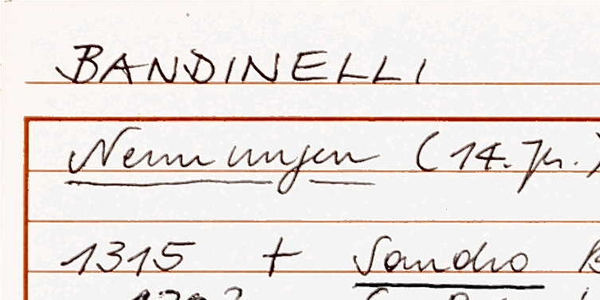 BANDINELLI
Nennungen (14. Jh.)
1315 † Sandro